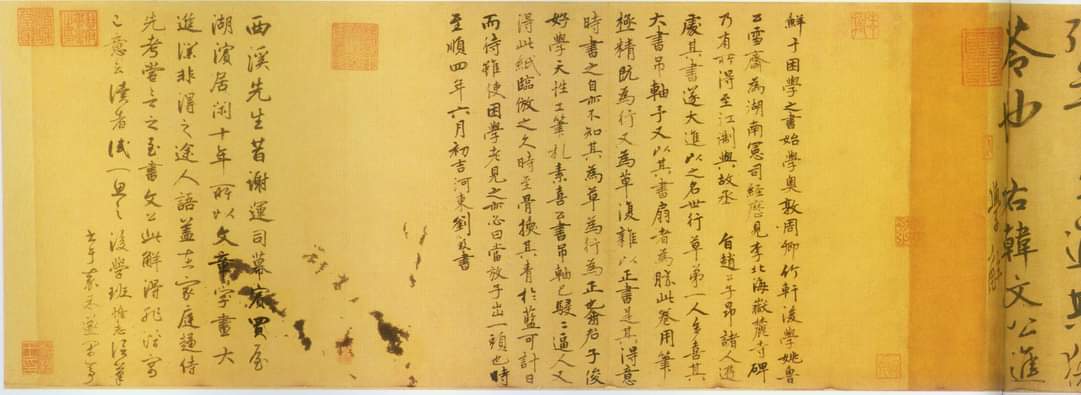 苓也 右韓文公進
學解
鮮于困學之書始學奧敦周卿竹軒後學姚魯
公雪齋為湖南憲司經歷見李北海嶽麓寺碑
乃有所得至江浙與故丞 旨趙公子昂諸人遊
處其書遂大進以之名世行草第一人多喜其
大書吊軸予又以其書扇者為勝此卷用筆
極精既為行又為草復雜以正書是其得意
時書之自亦不知其為草為行為正也 君子俊
好學天性工筆札素喜公書吊軸已駸駸逼人又
得此紙臨倣之久時至骨換其青於藍可計日
而待雖使困學老見之亦必曰當放子出一頭也時
至順四年六月初吉河東劉致書
西溪先生昔謝運司幕賓買屋
湖濱居閑十年所以文章字畫大
進深非得之途人語蓋在家庭過侍
先考嘗言之至書文公此解得非
己意云讀者試一思之後學班惟志謹筆